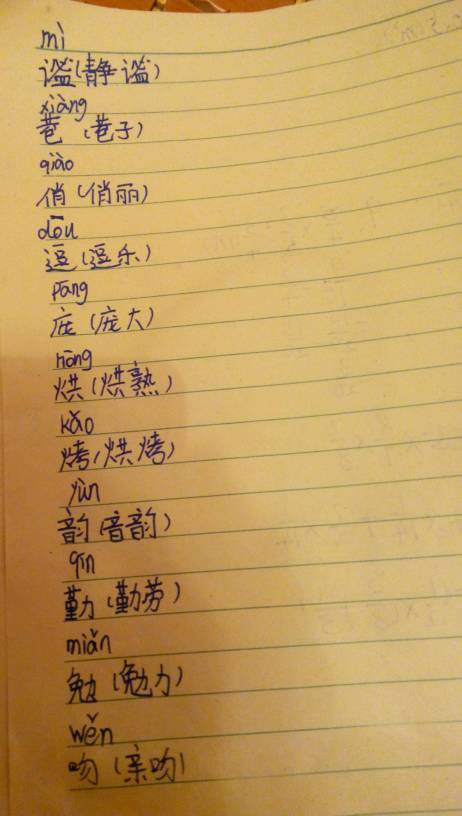 mì
谧(静谧)
xiàng
巷(巷子)
qiào
俏(俏丽)
dōu
逗(逗乐)
páng
庞(庞大)
hōng
烘(烘熟)
kǎo
烤(烘烤)
yùn
韵(音韵)
qín
勤(勤劳)
miǎn
勉(勉力)
wěn
吻(亲吻)